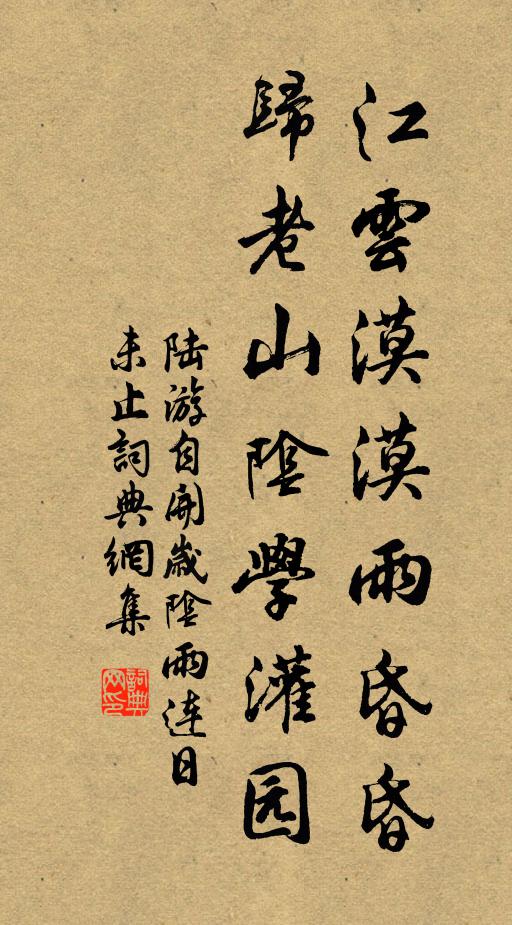 江雲漠漠雨昏昏
歸老山陰學灌园
陆游自開歲陰雨连日
未止詞典網集
詞典网印